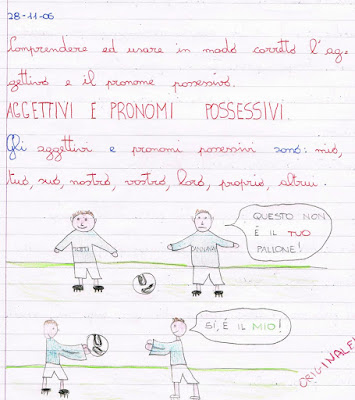 28-11-06
Comprendere ed usare in modo corretto l'ag-
gettivo e il pronome possessivo.
AGGETTIVI E PRONOMI POSSESSIVI.
Gli aggettivi e pronomi possessivi sono: mio,
tuo, suo, nostro, vostro, loro, proprio, altrui.
QUESTO NON
È IL TUO
PALLONE!
SÍ, É IL MIO!
ORIGINALE!